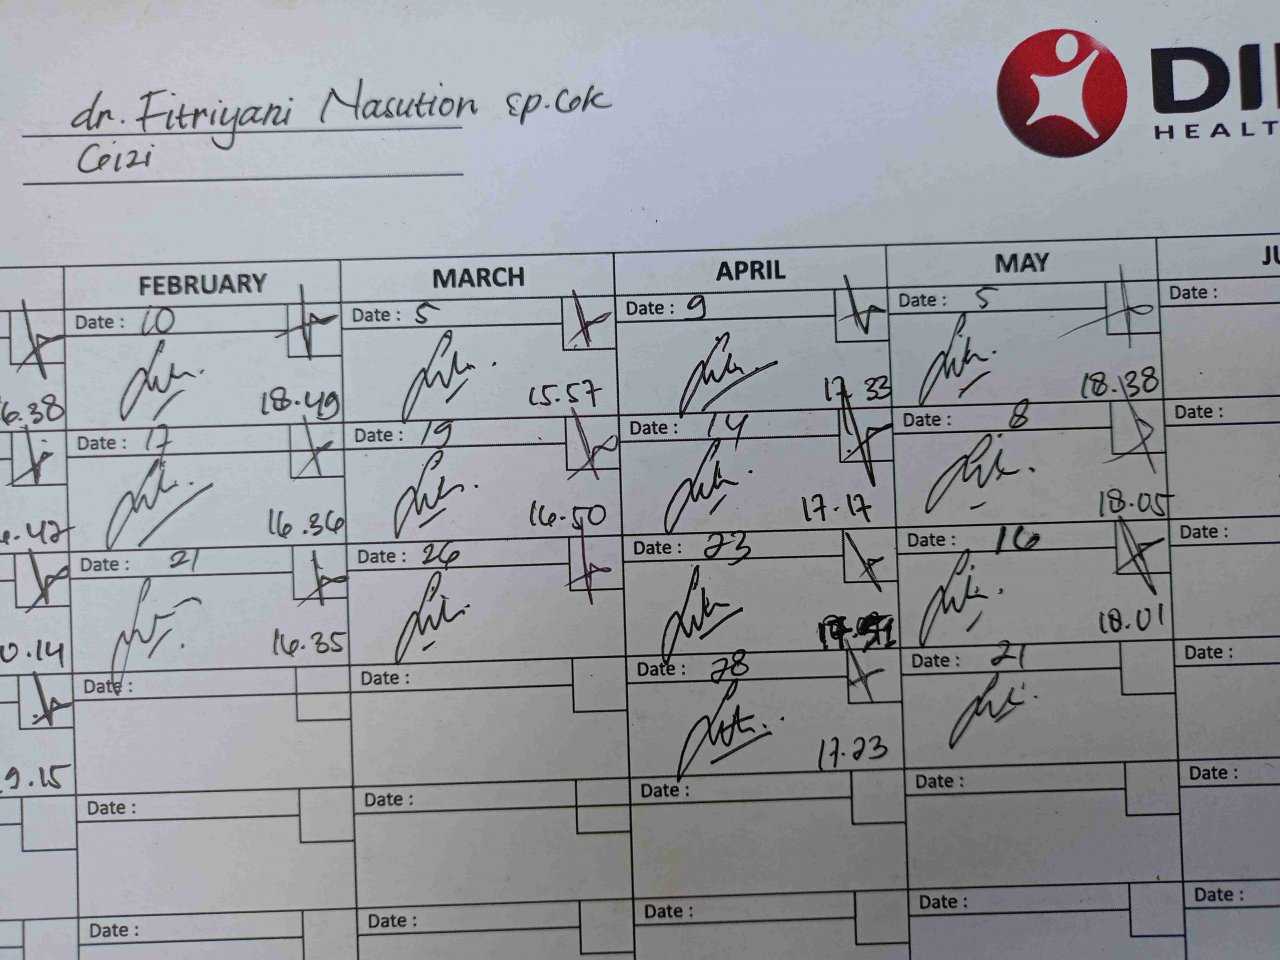 dr. Fitriyani Nasution sp.Gk
Gizi
DI
HEALT
FEBRUARY MARCH APRIL MAY JU
Date : 10 Date : 5 Date : 9 Date : 5 Date :
6.38 18.49 15.57 17.33 18.38
Date : 17 Date : 19 Date : 14 Date : 8 Date :
16.36 16.50 17.17 18.05
Date : 21 Date : 26 Date : 23 Date : 16 Date :
0.14 16.35 18.01
Date : Date : Date : 28 Date : 21 Date :
9.15 17.23
Date : Date : Date : Date : Date :
Date : Date : Date : Date : Date :